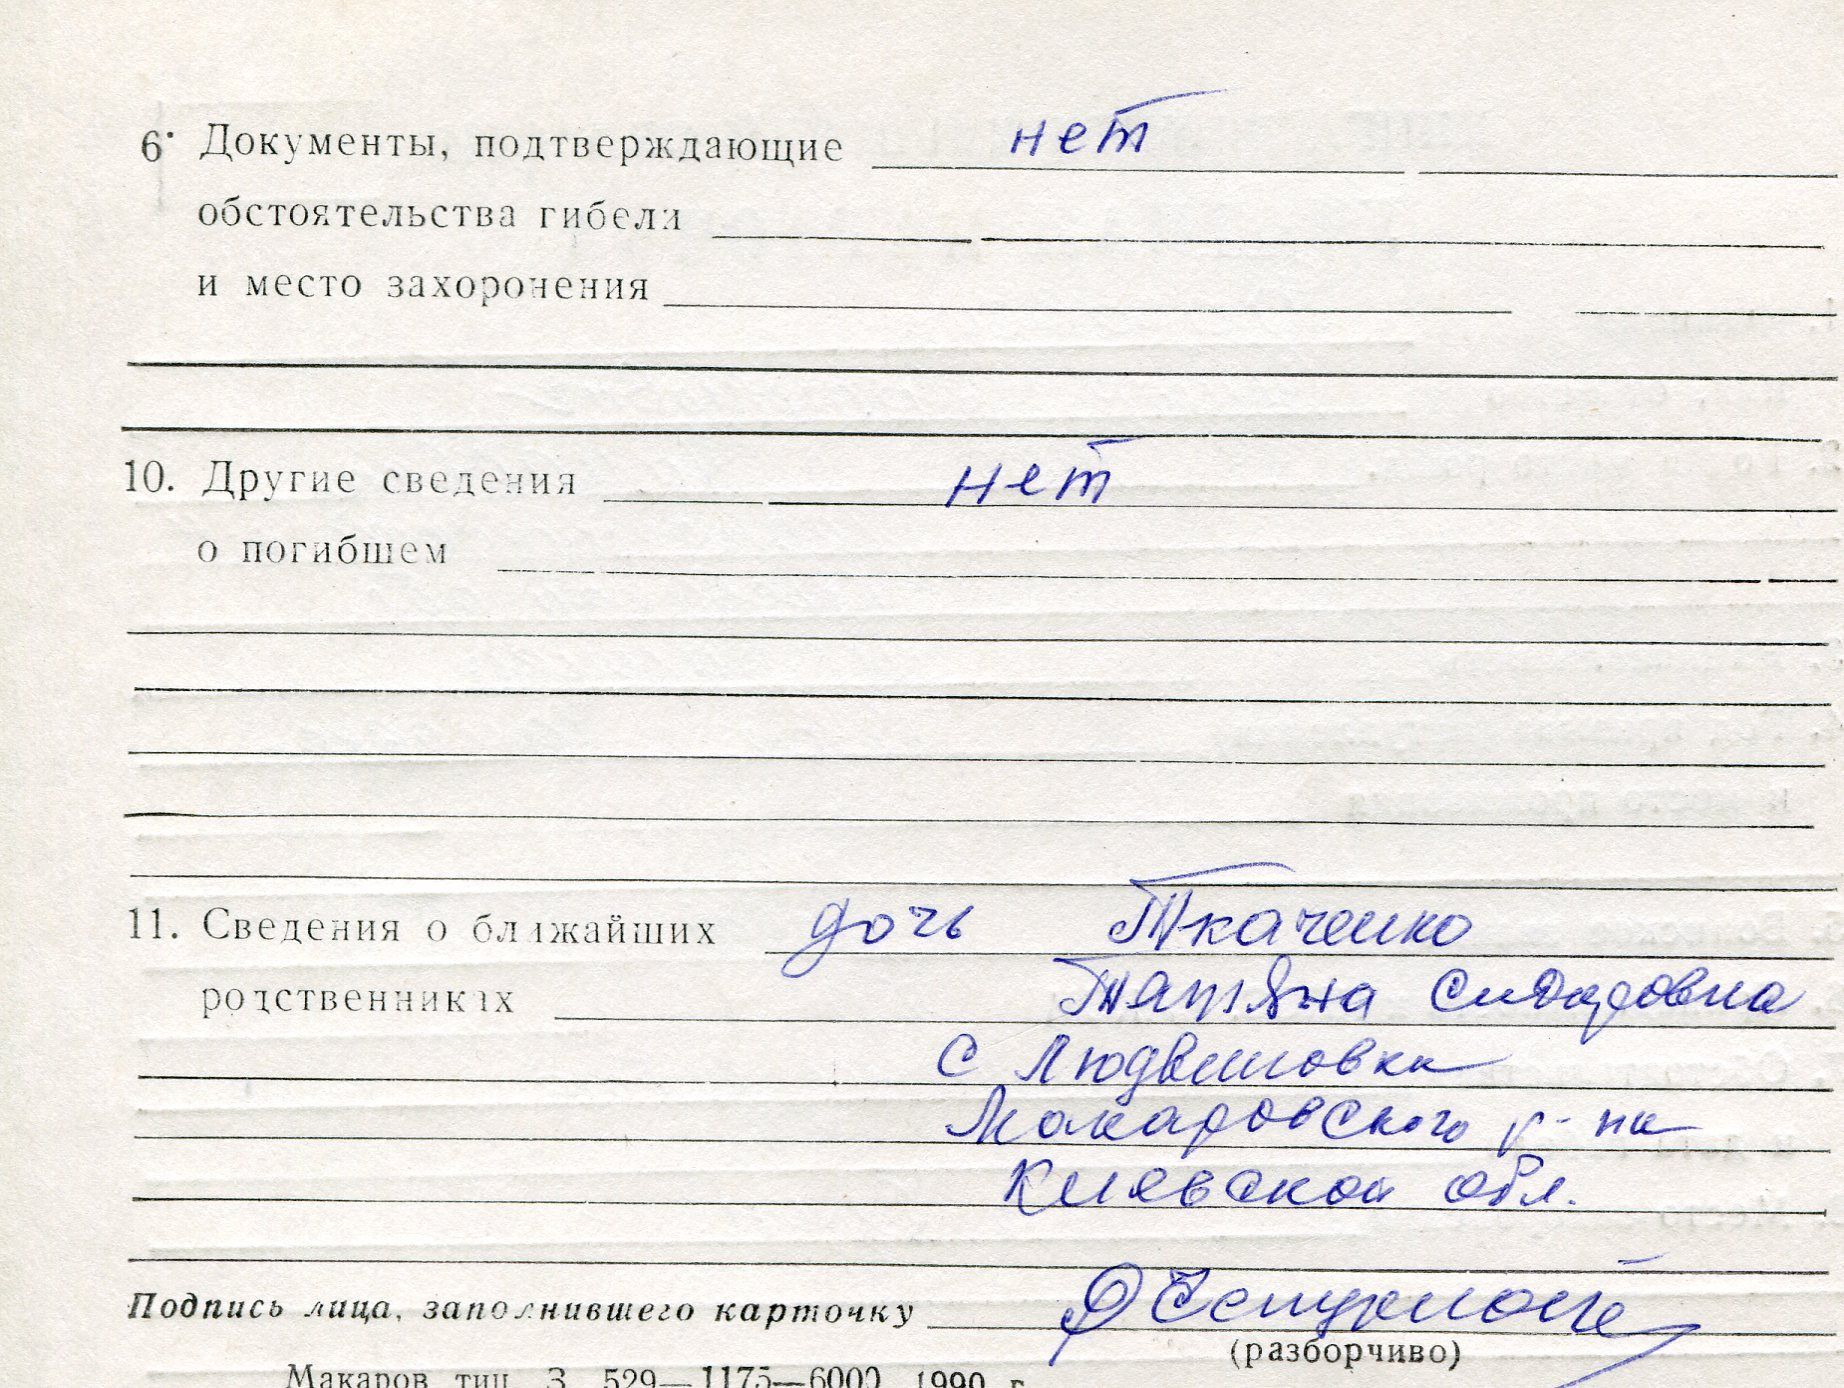 6. Документы, подтверждающие нет
обстоятельства гибели
и место захоронения
10. Другие сведения нет
о погибшем
11. Сведения о ближайших дочь Ткаченко
родственниках Татьяна Сидоровна
с Людвиновка
Макаровского р-на
Киевской обл.
Подпись лица, заполнившего карточку
(разборчиво)
Макаров тип. З. 529—1175—6000 1990 г.